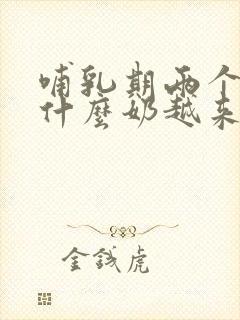 哺乳期两个
什麼奶越来
金钱虎